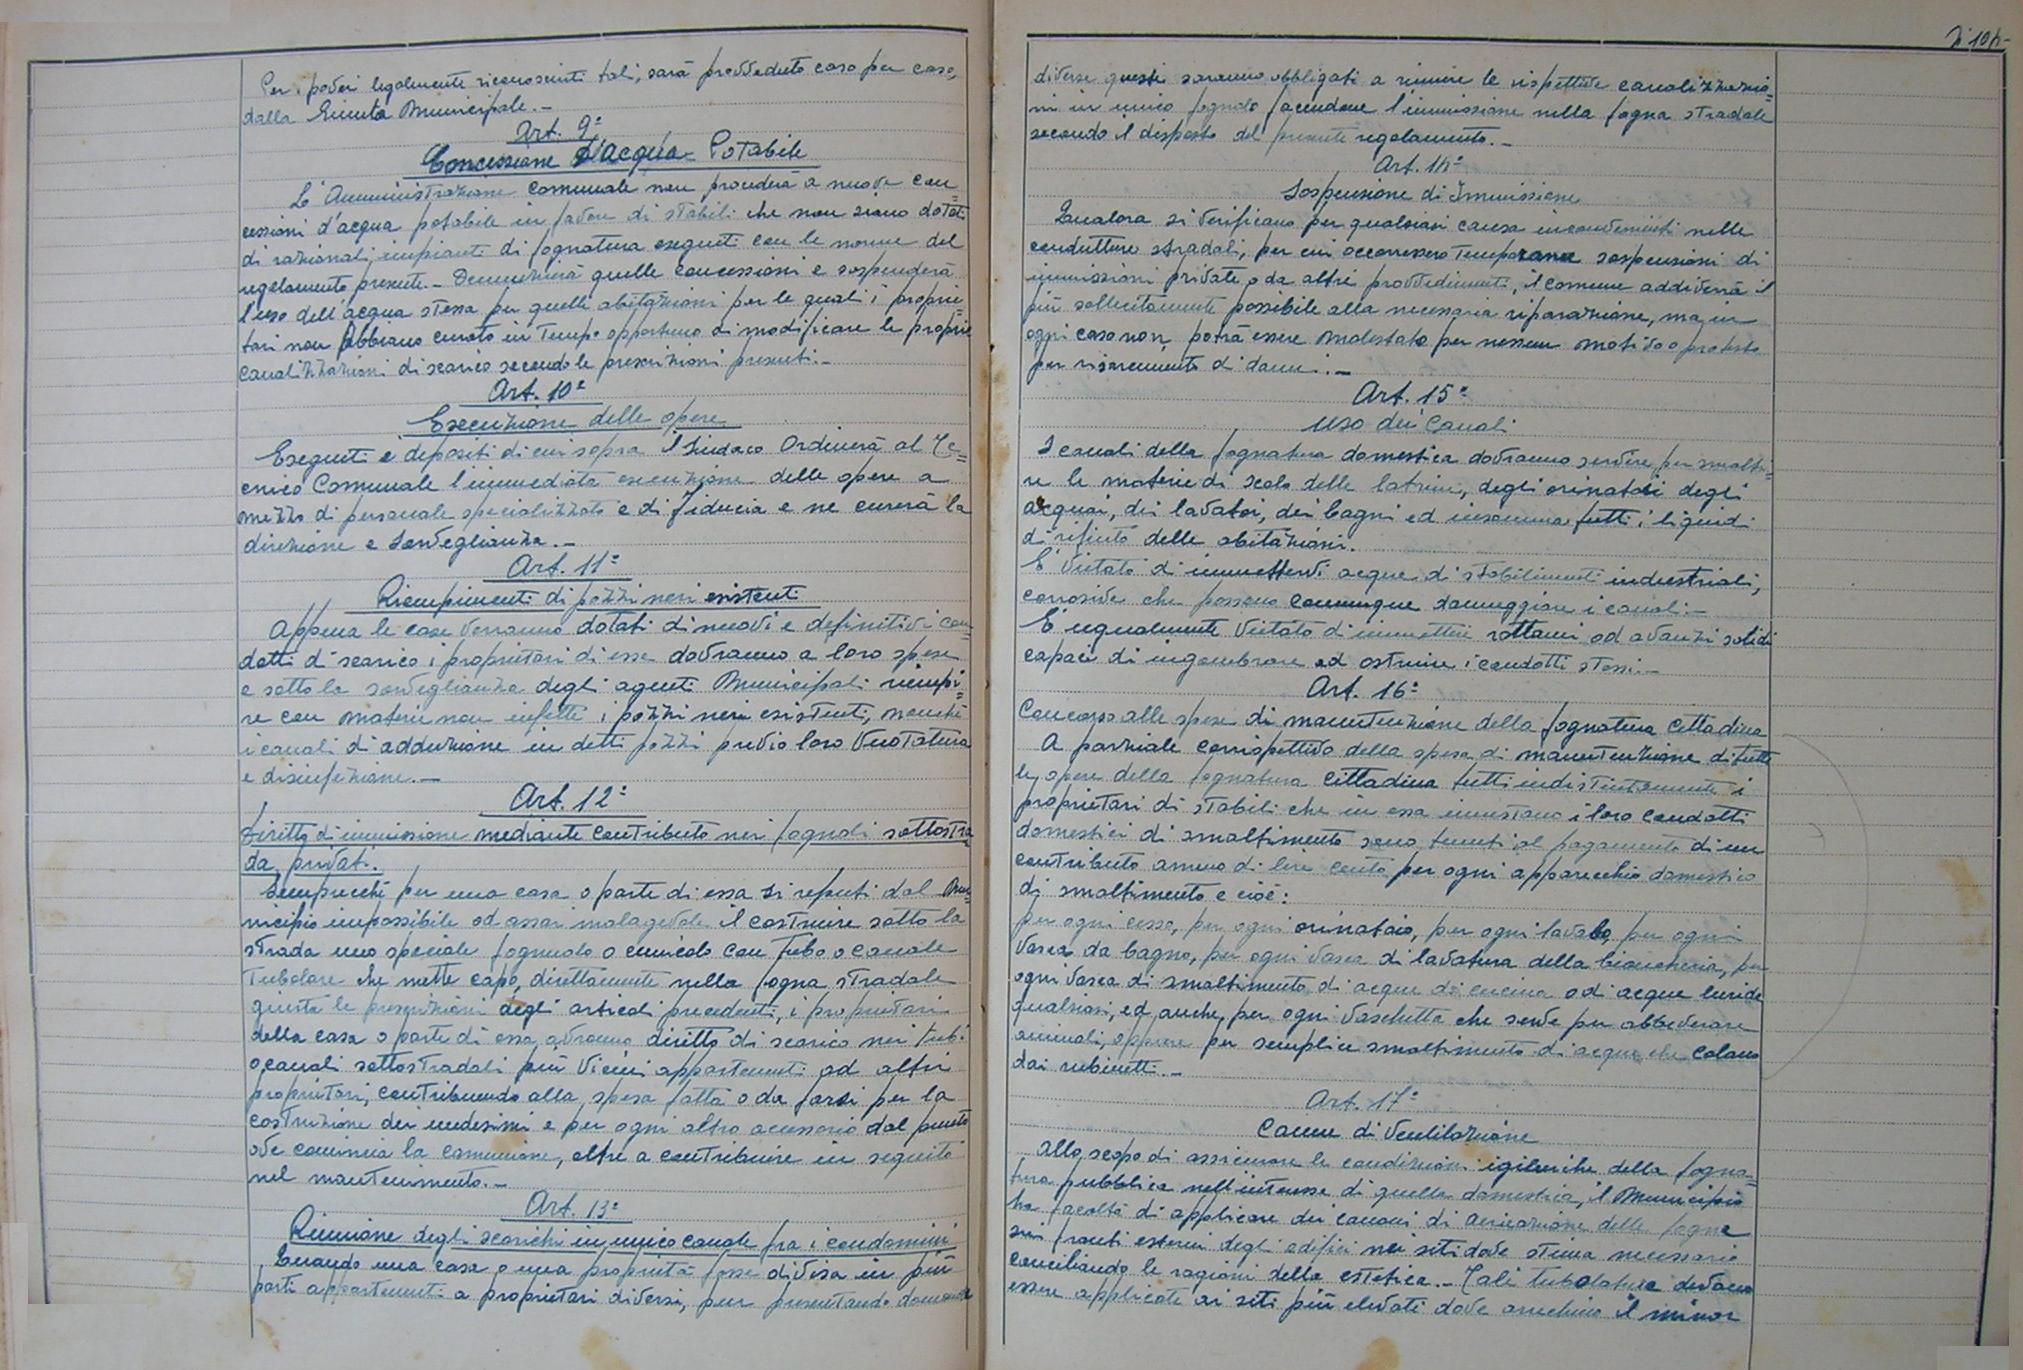 Per poderi legalmente riconosciuti tali, sarà provveduto caso per caso,
dalla Giunta Municipale.-
Art. 9°
Concessione d'acqua Potabile
L'Amministrazione comunale non procederà a nuove con=
cessioni d'acqua potabile in favore di stabili che non siano dotati
di razionali impianti di fognatura eseguiti con le norme del
regolamento presente.- Denunzierà quelle concessioni e sospenderà
l'uso dell'acqua stessa per quelle abitazioni per le quali i proprie=
tari non abbiano curato in tempo opportuno di modificare le proprie
canalizzazioni di scarico secondo le prescrizioni presenti.-
Art. 10°
Esecuzione delle opere
Eseguiti i depositi di cui sopra il Sindaco Ordinerà al Te=
cnico Comunale l'immediata esecuzione delle opere a
mezzo di personale specializzato e di fiducia e ne curerà la
direzione e sorveglianza.-
Art. 11°
Riempimenti di pozzi neri esistenti
Appena le case verranno dotati di nuovi e definitivi con=
dotti di scarico i proprietari di esse dovranno a loro spese
e sotto la sorveglianza degli agenti Municipali riempi=
re con materie non infette i pozzi neri esistenti, nonchè
i canali di adduzione in detti pozzi previo loro Vuotatura
e disinfezione.-
Art. 12°
Diritto di immissione mediante contributo nei fognoli sottostra
da privati.
Semprecchè per una casa o parte di essa si reputi dal Mu=
nicipio impossibile od assai malagevole il costruire sotto la
strada uno speciale fognuolo o cunicolo con tubo o canale
tubolare che mette capo, direttamente nella fogna stradale
giusta le prescrizioni degli articoli precedenti, i proprietari
della casa o parte di essa avranno diritto di scarico nei tubi
o canali sottostradali più vicini appartenenti ad altri
proprietari, contribuendo alla spesa fatta o da farsi per la
costruzione dei medesimi e per ogni altro accessorio dal punto
ove comincia la comunione, oltre a contribuire in seguito
nel mantenimento.-
Art. 13°
Riunione degli scarichi in unico canale fra i condomini
Quando una casa o una proprietà fosse divisa in più
parti appartenenti a proprietari diversi, pur presentando domande
N° 104-
diverse questi saranno obbligati a riunire le rispettive canalizzazio=
ni in unico fognolo facendone l'immissione nella fogna stradale
secondo il disposto del presente regolamento.-
Art. 14°
Sospensione di Immissione
Qualora si verificano per qualsiasi causa inconvenienti nelle
condutture stradali, per cui occorressero temporanee sospensioni di
immissioni private o da altri provvedimenti, il comune addiverrà il
più sollecitamente possibile alla necessaria riparazione, ma in
ogni caso non potrà essere molestato per nessun motivo o protesto
per risarcimento di danni.-
Art. 15°
Uso dei Canali
I canali della fognatura domestica dovranno servire per smalti=
re le materie di scolo delle latrine, degli orinatoi degli
acquai, dei lavatoi, dei bagni ed insomma tutti i liquidi
di rifiuto delle abitazioni.
E' Vietato di immettervi acque di stabilimenti industriali,
corrosive che possono comunque danneggiare i canali.-
E' ugualmente Vietato di immettere rottami od avanzi solidi
capaci di ingombrare ed ostruire i condotti stessi.-
Art. 16°
Concorso alle spese di manutenzione della fognatura Cittadina
A parziale corrispettivo della spesa di manutenzione di tutte
le opere della fognatura cittadina tutti indistintamente i
proprietari di stabili che in essa innestano i loro condotti
domestici di smaltimento sono tenuti al pagamento di un
contributo annuo di lire cento per ogni apparecchio domestico
di smaltimento e cioè:
per ogni cesso, per ogni orinatoio, per ogni lavabo, per ogni
Vasca da bagno, per ogni vasca di lavatura della biancheria, per
ogni vasca di smaltimento di acque di cucina o di acque luride
qualsiasi, ed anche per ogni vaschetta che serve per abbeverare
animali, oppure per semplice smaltimento di acque che colano
dai rubinetti.-
Art. 17°
Canne di Ventilazione
Allo scopo di assicurare le condizioni igieniche della fogna=
tura pubblica nell'interesse di quella domestica, il Municipio
ha facoltà di applicare dei cannoni di aereazione delle fogne
sui fronti esterni degli edifici nei siti dove stima necessario
conciliando le ragioni della estetica.- Tali tubolature devono
essere applicate ai siti più elevati dove arrechino il minor